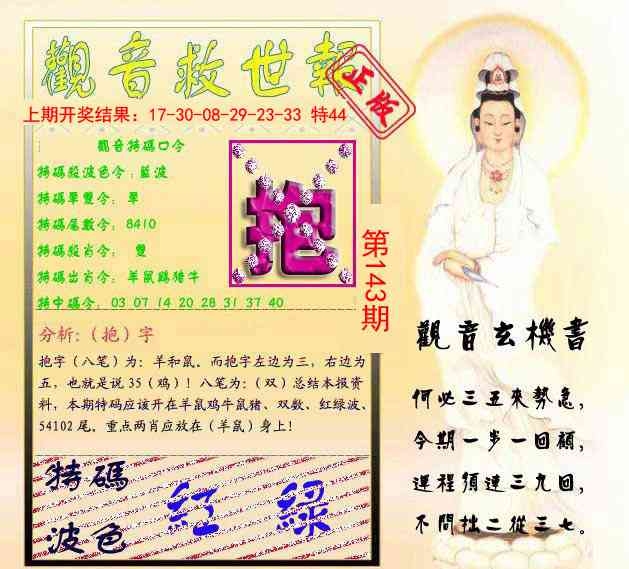 觀音救世報
正版
上期开奖结果：17-30-08-29-23-33 特44
觀音特碼口令
特碼殺波色令：藍波
特碼單雙令： 單
特碼尾數令：8410
特碼殺肖令： 雙
特碼出肖令：羊鼠鷄猪牛
特中碼令：03 07 14 20 28 31 37 40
抱
第143期
分析:（抱）字
抱字（八笔）为：羊和鼠。而抱字左边为三，右边为
五，也就是说 35（鸡）！八笔为：（双）总结本报资
料，本期特码应该开在羊鼠鸡牛鼠猪、双数、红绿波、
54102 尾。重点两肖应放在（羊鼠）身上！
特碼
波色
紅 綠
觀音玄機書
何必三五來勢急，
今期一步一回顧，
運程須達三九回，
不問拙二從三七。